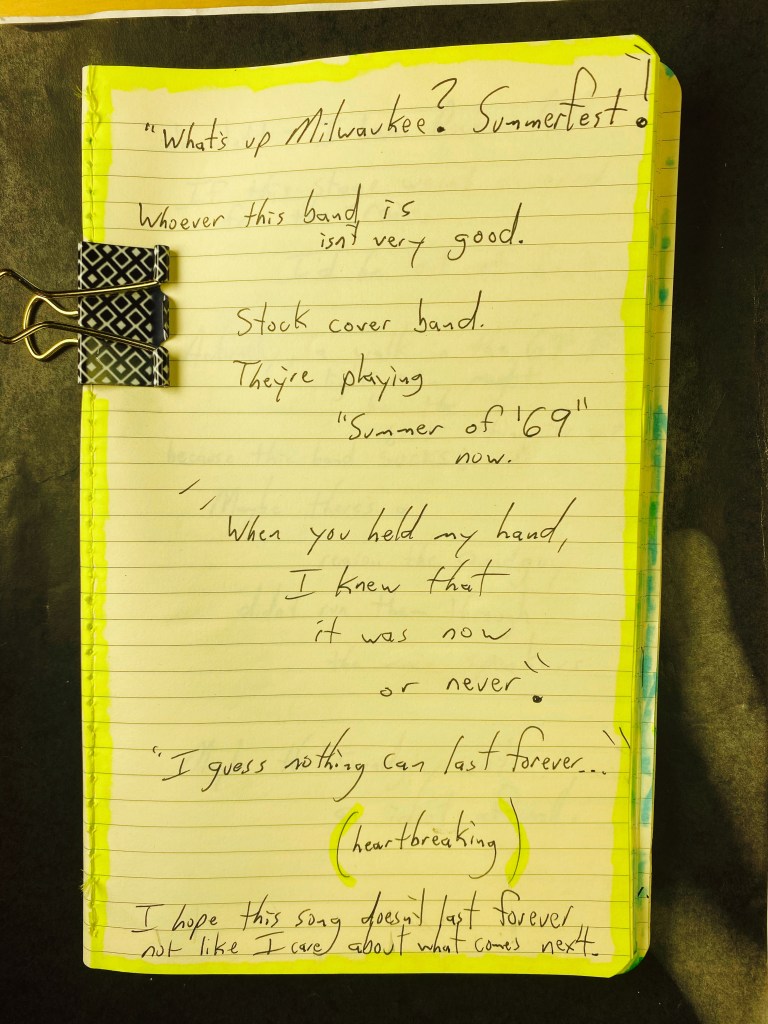 "What's up Milwaukee? Summerfest!"
Whoever this band is
isn't very good.
Stock cover band.
They're playing
"Summer of '69"
now.
"When you held my hand,
I knew that
it was now
or never".
"I guess nothing can last forever..."
(heartbreaking)
I hope this song doesn't last forever
not like I care about what comes next.